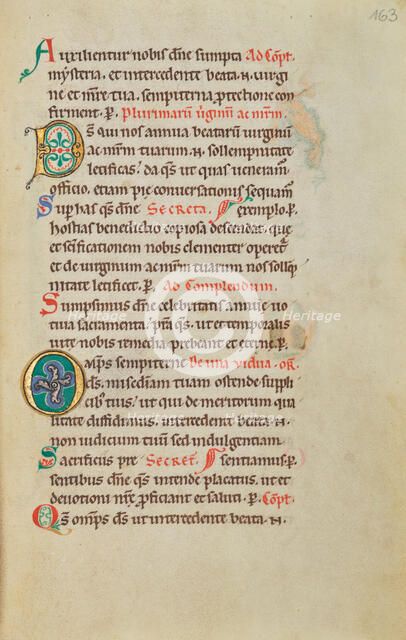 163
Auxilientur nobis dne sumpta Ad Copl.
mysteria. et intercedente beata. N. virgi
ne et mre tua. sempiterna protectione con
firment. P. Plurimaru uginu ac mrm.
Ds qui nos annua beataru virginu
ac mrm tuarum. N. sollempnitate
letificas. da qs ut quas ueneram
officio. etiam pie conuersationis sequam
Sup has qs dne Secreta. exemplo. P.
hostias benedictio copiosa descendat. que
et scificationem nobis clementer operet
et de uirginum ac mrm tuarum nos sollep
nitate letificet. P. Ad Complendum.
Sumpsimus dne celebritatis annue uo
tiua sacramenta. pm qs. ut et temporalis
uite nobis remedia prebeant et eterne. P.
Omps sempiterne De una vidua. or.
ds. misediam tuam ostende suppli
cibus tuis. ut qui de meritorum qua
litate diffidimus. intercedente beata. N.
non iudicium tuu sed indulgentiam
Sacrificiis pre Secret. sentiamus. P.
sentibus dne qs intende placatus. ut et
deuotioni nre proficiant et saluti. P. Copl.
Qs omps ds ut intercedente beata. N.
Heritage
Heritage
Heritage
Heritage
Heritage
Heritage